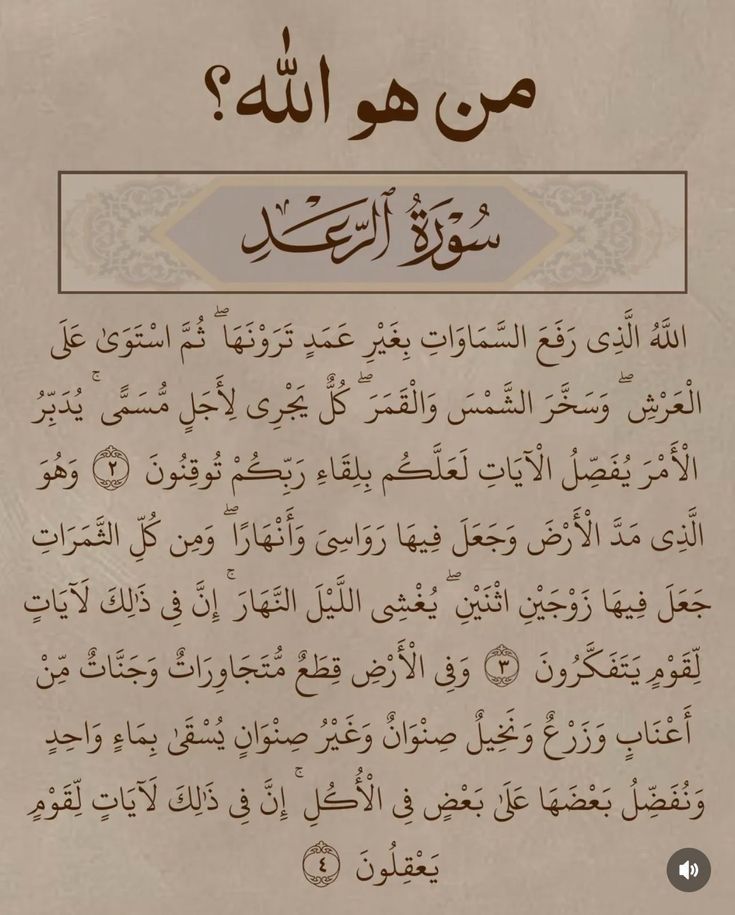 من هو الله؟
سُوْرَةُ ٱلرَّعْدِ
اللَّهُ الَّذِى رَفَعَ السَّمَاوَاتِ بِغَيْرِ عَمَدٍ تَرَوْنَهَا ۖ ثُمَّ اسْتَوَىٰ عَلَى
الْعَرْشِ ۖ وَسَخَّرَ الشَّمْسَ وَالْقَمَرَ ۖ كُلٌّ يَجْرِى لِأَجَلٍ مُّسَمًّى ۚ يُدَبِّرُ
الْأَمْرَ يُفَصِّلُ الْآيَاتِ لَعَلَّكُم بِلِقَاءِ رَبِّكُمْ تُوقِنُونَ ﴿٢﴾ وَهُوَ
الَّذِى مَدَّ الْأَرْضَ وَجَعَلَ فِيهَا رَوَاسِىَ وَأَنْهَارًا ۖ وَمِن كُلِّ الثَّمَرَاتِ
جَعَلَ فِيهَا زَوْجَيْنِ اثْنَيْنِ ۖ يُغْشِى اللَّيْلَ النَّهَارَ ۚ إِنَّ فِى ذَٰلِكَ لَآيَاتٍ
لِّقَوْمٍ يَتَفَكَّرُونَ ﴿٣﴾ وَفِى الْأَرْضِ قِطَعٌ مُّتَجَاوِرَاتٌ وَجَنَّاتٌ مِّنْ
أَعْنَابٍ وَزَرْعٌ وَنَخِيلٌ صِنْوَانٌ وَغَيْرُ صِنْوَانٍ يُسْقَىٰ بِمَاءٍ وَاحِدٍ
وَنُفَضِّلُ بَعْضَهَا عَلَىٰ بَعْضٍ فِى الْأُكُلِ ۚ إِنَّ فِى ذَٰلِكَ لَآيَاتٍ لِّقَوْمٍ
يَعْقِلُونَ ﴿٤﴾